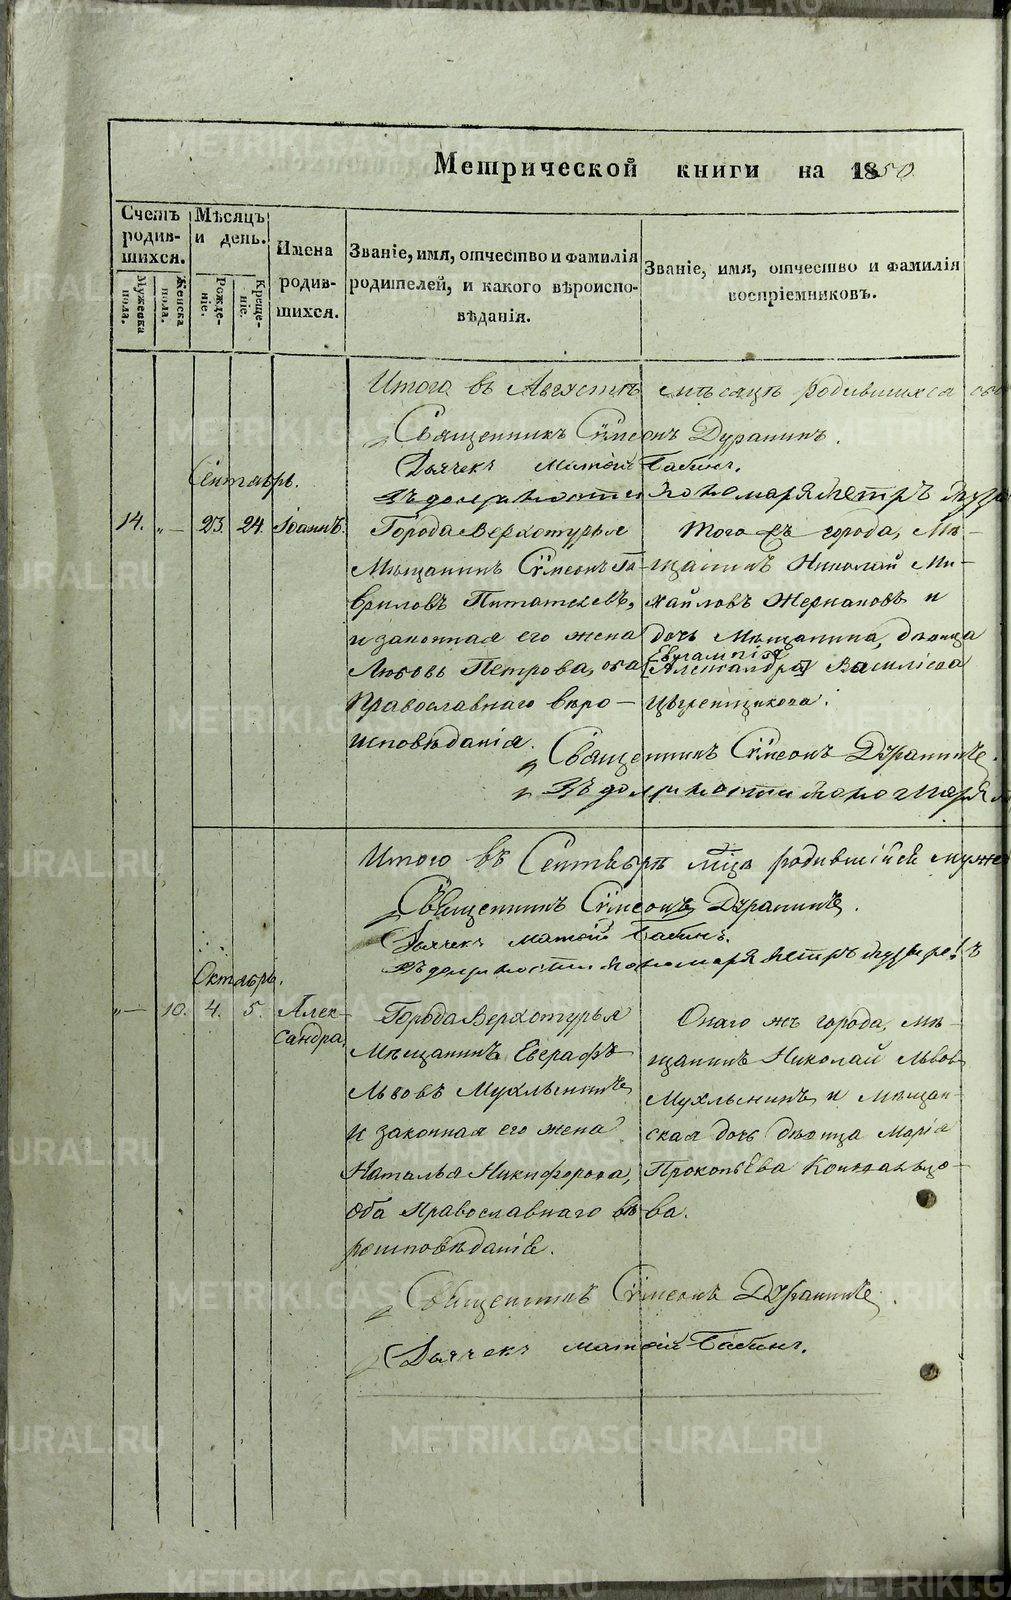 Метрической книги на 1850
Счетъ родив-шихся.
Мужеска пола.
Женска пола.
Мѣсяцъ и день.
Рожде-ніе.
Креще-ніе.
Имена родив-шихся.
Званіе, имя, отчество и фамилія родителей, и какого вѣроиспо-вѣданія.
Званіе, имя, отчество и фамилія воспріемниковъ.
Итого въ Августѣ мѣсяцѣ родившихся
Священникъ Сѵмеонъ Дуранинъ.
Дьячекъ Матѳій Бабинъ.
Въ должности пономаря Петръ
Сентябрь.
14. „— 23. 24. Іоаннъ.
Города Верхотурья
Мѣщанинъ Сѵмеонъ Га-
вриловъ
и законная его жена
Любовь Петрова, оба
Православнаго вѣро-
исповѣданія.
Того жъ города, Мѣ-
щанинъ Николай Ми-
хайловъ Жернаковъ и
дочь Мѣщанина, дѣвица
Евлампія
[Александра] Василіева
Священникъ Сѵмеонъ Дуранинъ.
Въ должности пономаря
Итого въ Сентябрѣ мцѣ родившійся муже
Священникъ Сѵмеонъ Дуранинъ.
Дьячекъ Матѳій Бабинъ.
Въ должности пономаря Петръ
Октябрь.
„— 10. 4. 5. Алек-
сандра.
Города Верхотурья
Мѣщанинъ Евграфъ
Львовъ Мухлынинъ
и законная его жена
Наталья Никифорова,
оба Православнаго вѣ-
роисповѣданія.
Онаго жъ города, мѣ-
щанинъ Николай Львов
Мухлынинъ и мѣщан-
ская дочь дѣвица Марія
Прокопьева
ва.
Священникъ Сѵмеонъ Дуранинъ.
Дьячекъ Матѳій Бабинъ.
METRIKI.GASO-URAL.RU